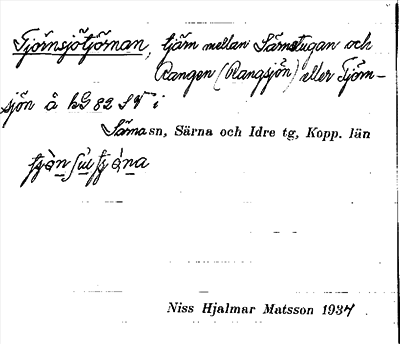 Tjörnsjötjörnan, tjärn mellan Särnstugan och
Rangen (Rangsjön) eller Tjörn-
sjön å bG 82 SV i
Särna sn, Särna och Idre tg, Kopp. län
Niss Hjalmar Matsson 1937